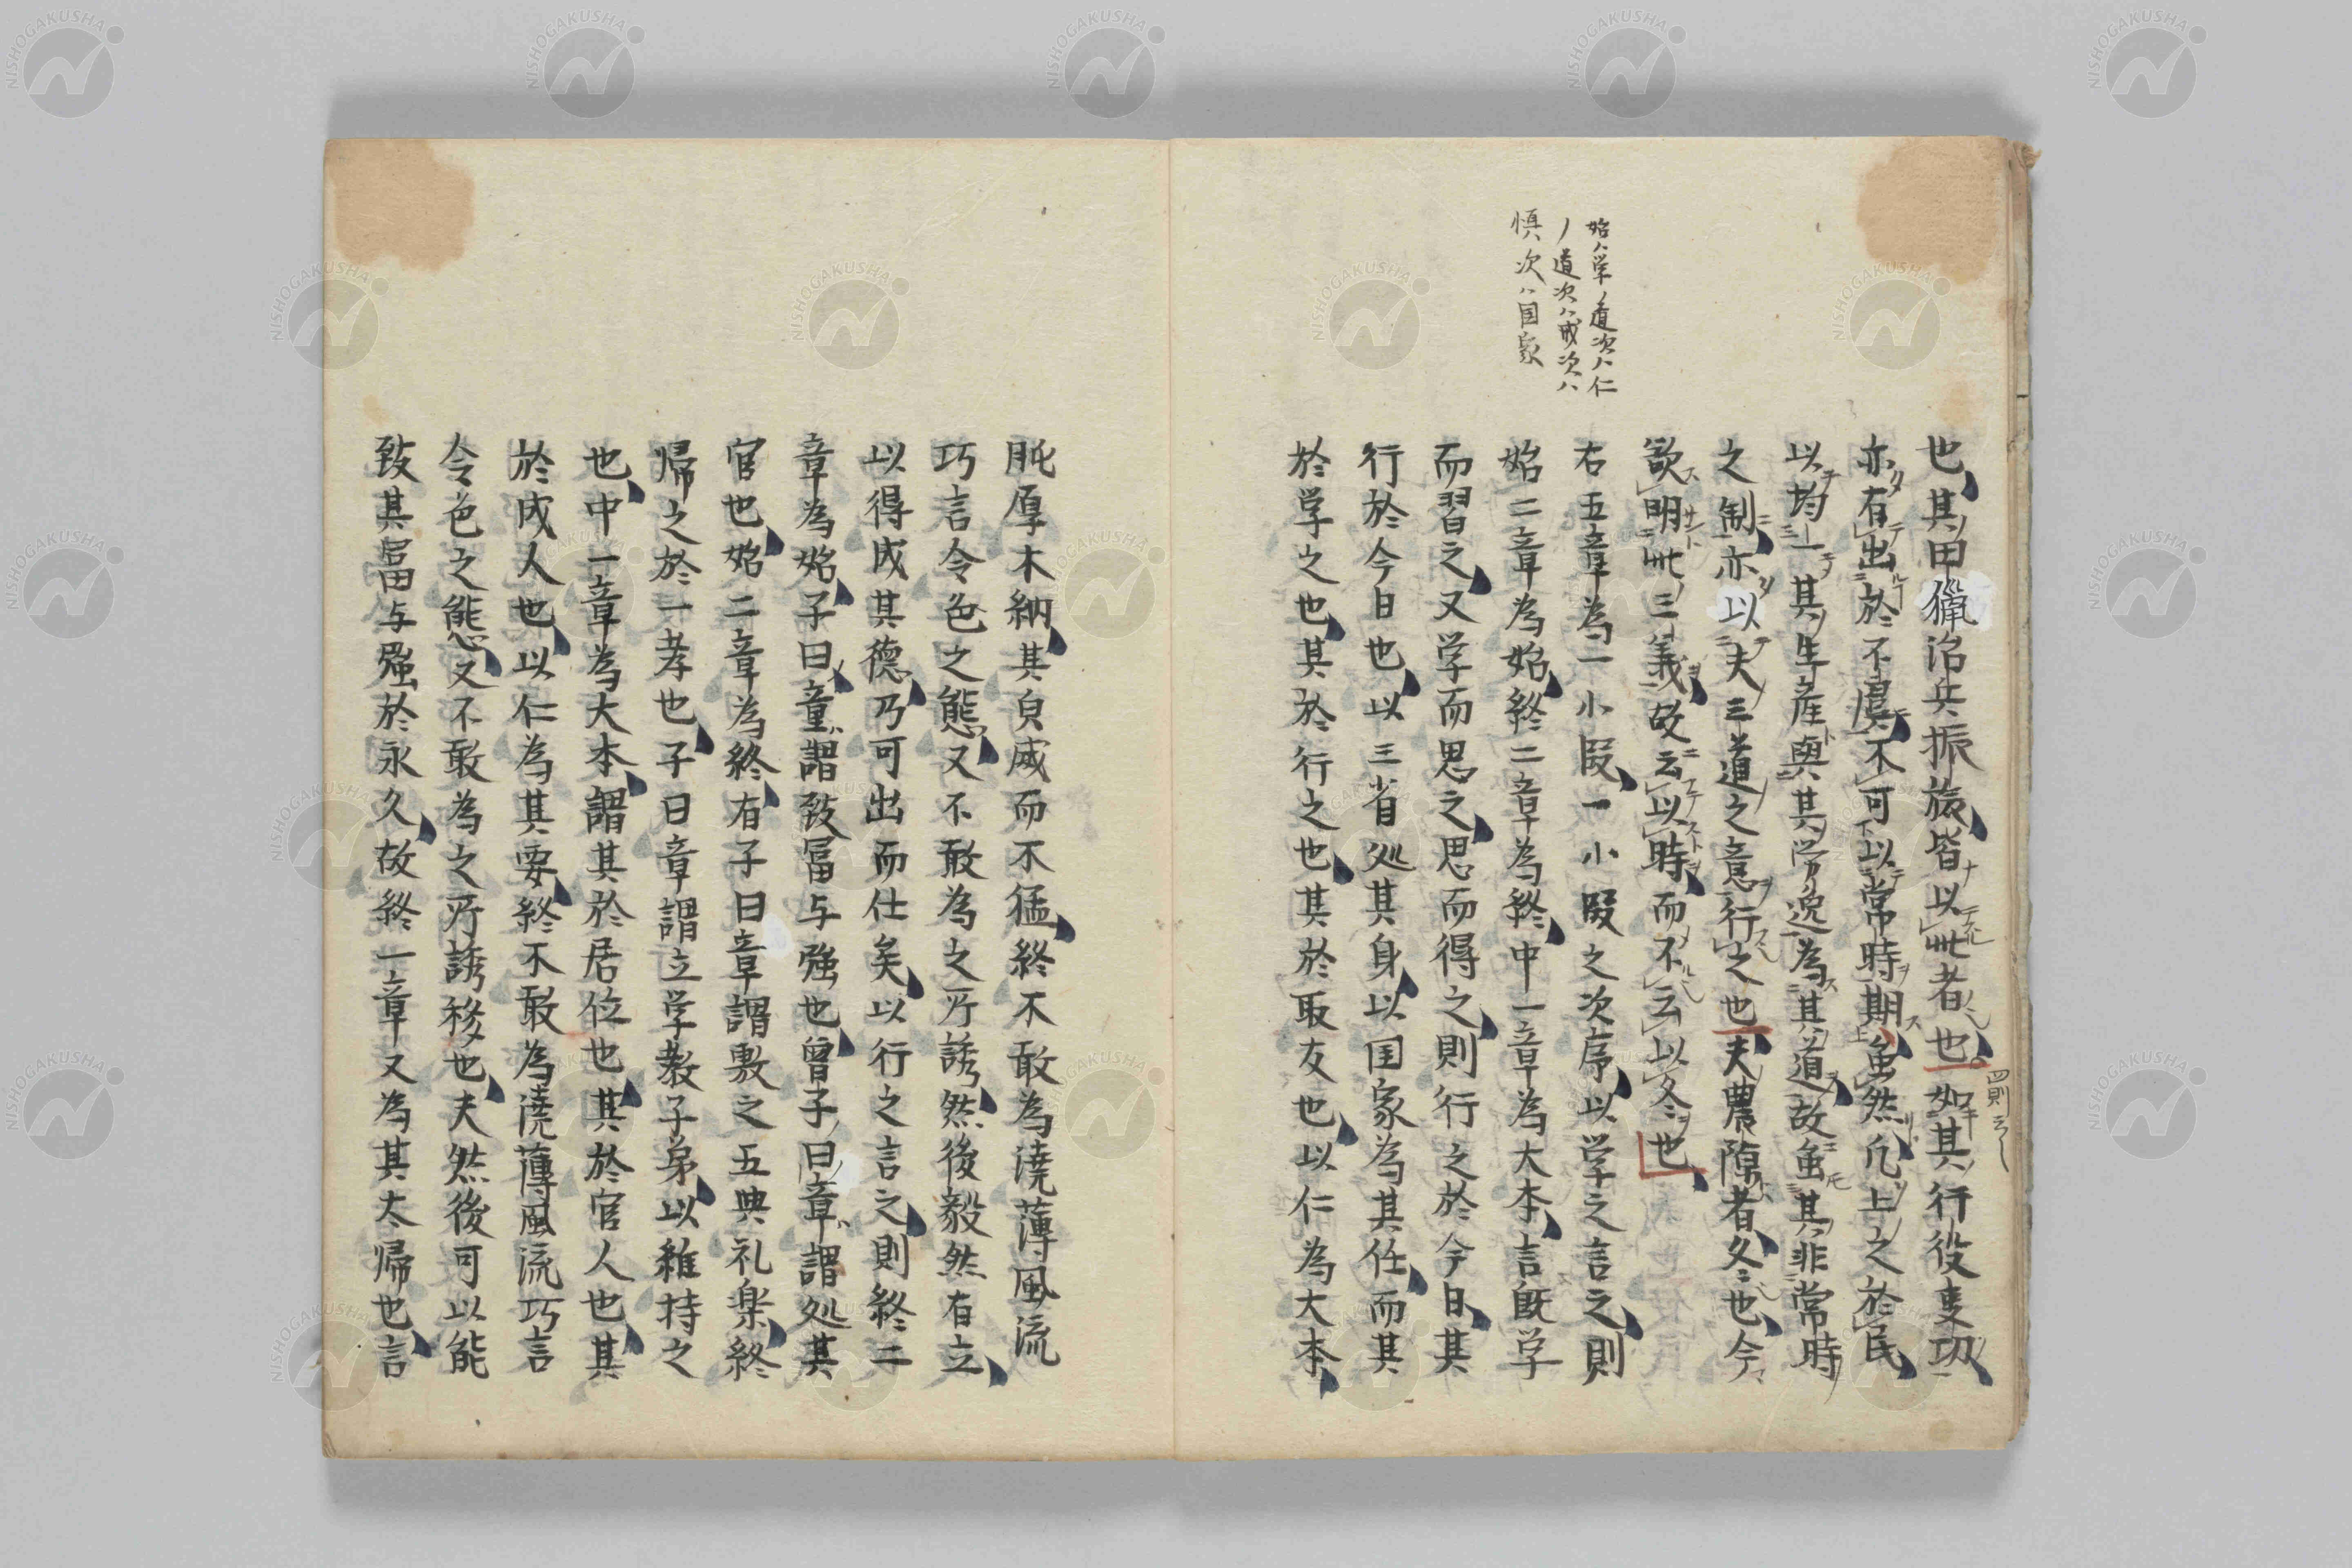 始ハ学ノ道次ハ仁
ノ道次ハ戒次ハ
慎次ハ国家
也其田獵治兵振旅皆以此者也如其行役隻功
亦有出於不虞不可以常時期虽然凡上之於民
以均一其生産與其労逸為其道故虽其非常時
之制亦以夫三道之意行之也夫農隙者冬也今
欲明此三義故云以時而不云以冬也
右五章為一小段一小段之次序以学之言之則
始二章為始終二章為終中一章為大本言既学
而習之又学而思之思而得之則行之於今日其
行於今日也以三省処其身以国家為其任而其
於学之也其於行之也其於取友也以仁為大本
肫厚木納其皃威而不猛終不敢為澆薄風流
巧言令色之態又不敢為之所誘然後毅然有立
以得成其德乃可出而仕矣以行之言之則終二
章為始子曰章謂致冨与強也曾子曰章謂処其
官也始二章為終有子曰章謂敷之五典礼楽終
帰之於一孝也子曰章謂立学教子弟以維持之
也中一章為大本謂其於居位也其於官人也其
於成人也以仁為其要終不敢為澆薄風流巧言
令色之態又不敢為之所誘移也夫然後可以能
致其冨与強於永久故終一章又為其大帰也言
NISHOGAKUSHA